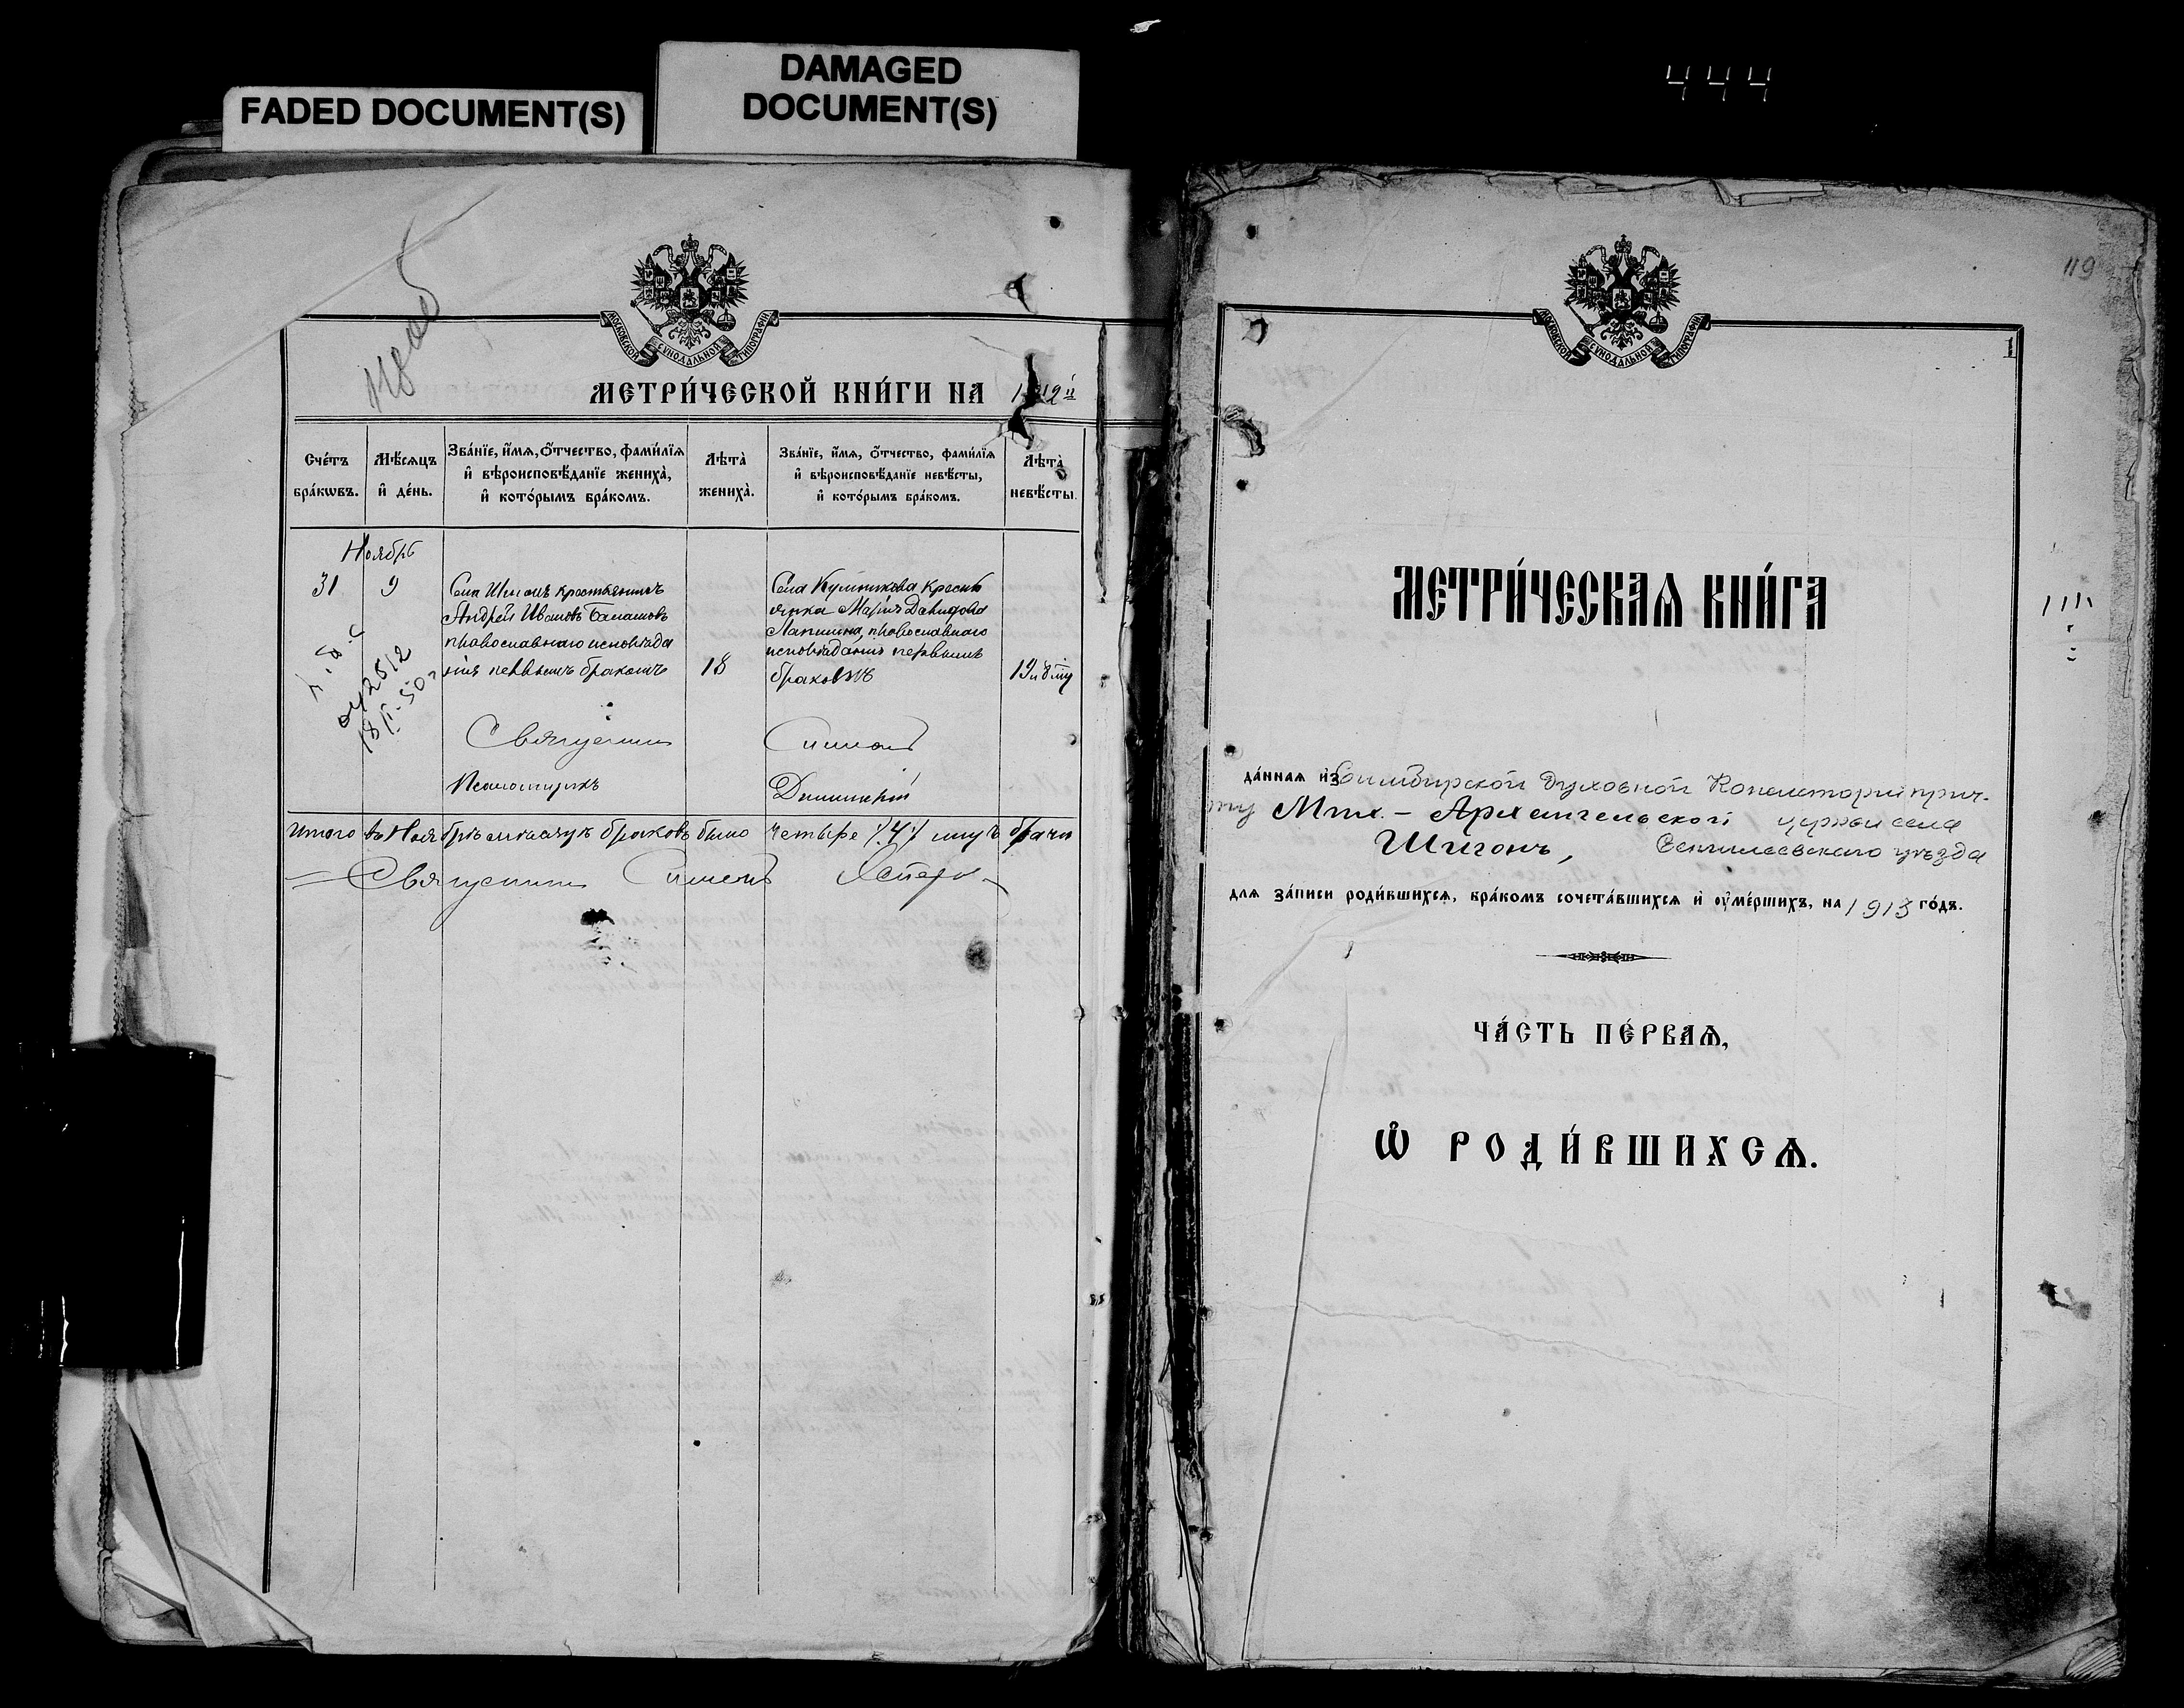 FADED DOCUMENT(S)
DAMAGED
DOCUMENT(S)
444
118 об
МОСКОВСКОЙ СУНОДАЛЬНОЙ ТИПОГРАФІИ
МЕТРИ́ЧЕСКОЙ КНИ́ГИ НА 1912 й
Сче́тъ бра́кѡвъ.
Мѣ́сѧцъ и҆ де́нь.
Зва́нїе, и҆́мѧ, ѻ҆́тчество, фами́лїѧ и҆ вѣроисповѣ́данїе жениха̀, и҆ кото́рымъ бра́комъ.
Лѣта̀ жениха̀.
Зва́нїе, и҆́мѧ, ѻ҆́тчество, фами́лїѧ и҆ вѣроисповѣ́данїе невѣ́сты, и҆ кото́рымъ бра́комъ.
Лѣта̀ невѣ́сты.
Ноябрь
31
9
Села Шигонъ крестьянинъ
Андрей Ивановъ Балашовъ
православнаго исповѣда
нія первымъ бракомъ
18
Села Куликова кресть
янка Марія Давидова
Лапшина, православнаго
исповѣданія первымъ
бракомъ
Священникъ Симеонъ
Псаломщикъ
Итого въ Ноябрѣ мѣсяцѣ браковъ было четыре (4)
Священникъ Симеонъ
119
1
МОСКОВСКОЙ СУНОДАЛЬНОЙ ТИПОГРАФІИ
МЕТРИ́ЧЕСКАѦ КНИ́ГА
да́ннаѧ и҆з Симбирской Духовной Консисторіи прич-
ту Мих.-Архангельской церкви села
Шигонъ, Сенгилеевскаго уѣзда
длѧ за́писи роди́вшихсѧ, бра́комъ сочета́вшихсѧ и҆ ᲂу҆ме́ршихъ, на 1913 го́дъ.
ЧА́СТЬ ПЕ́РВАѦ,
Ѽ РОДИ́ВШИХСѦ.